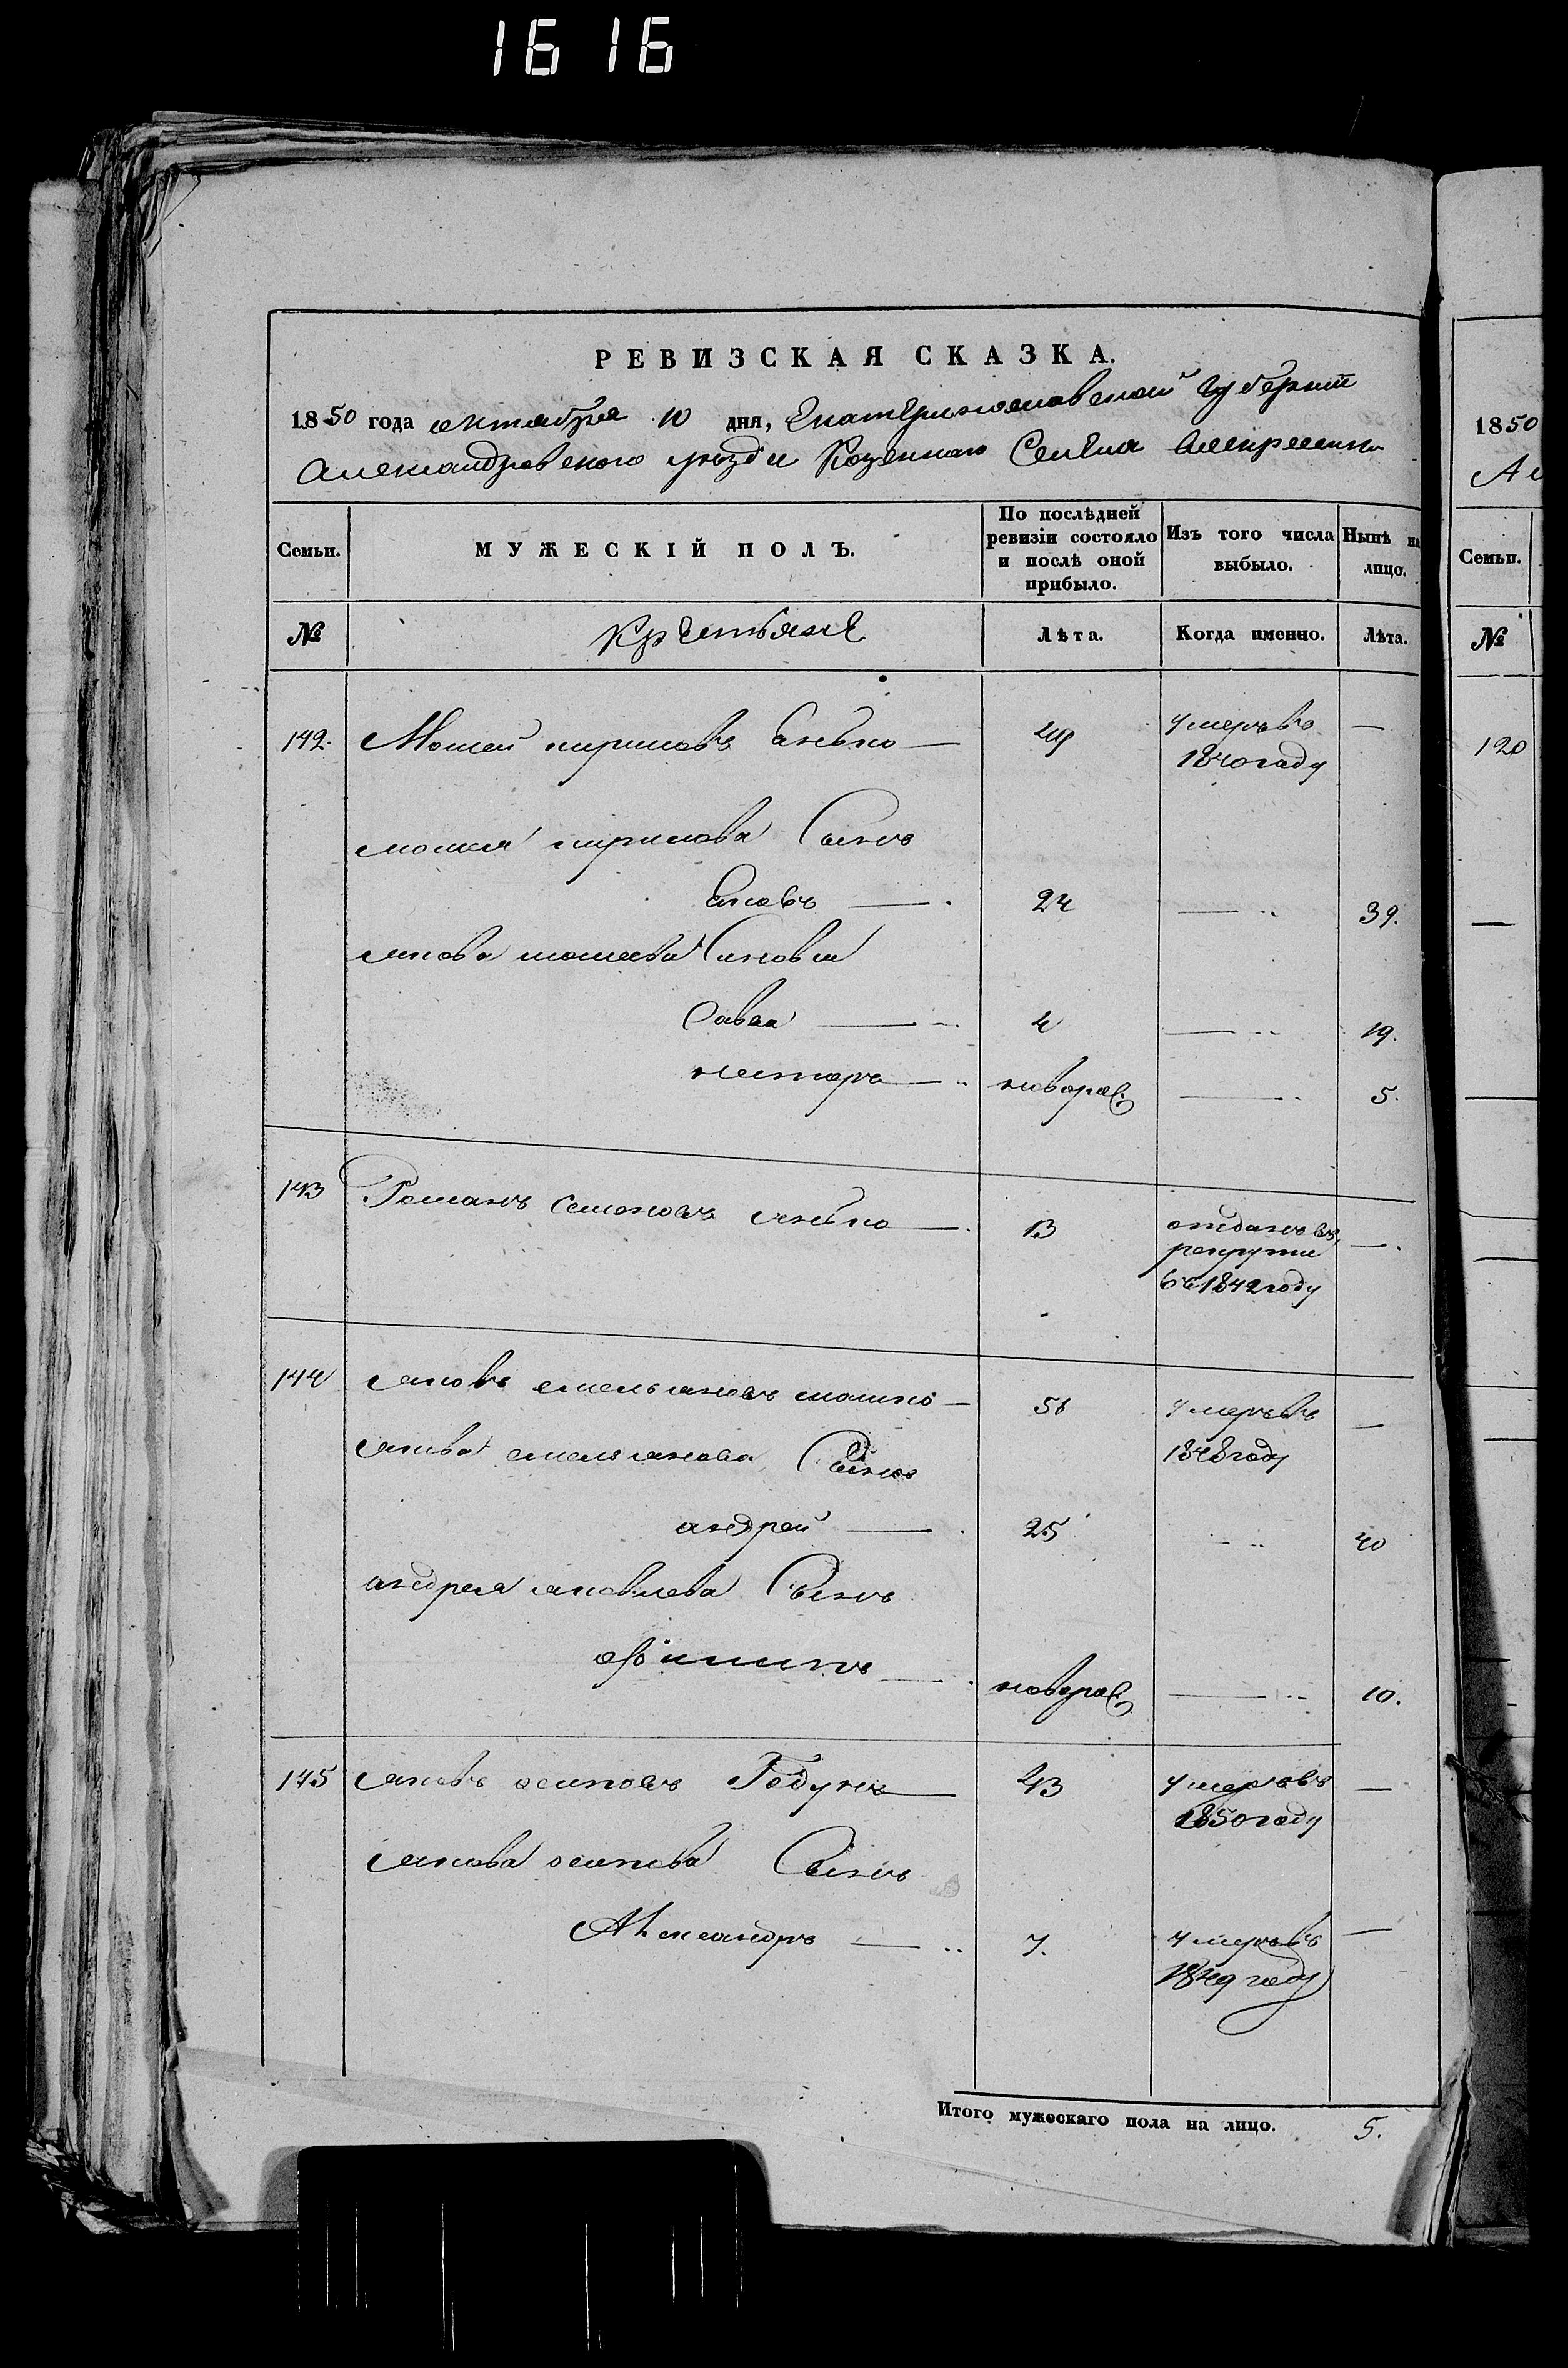 1616
РЕВИЗСКАЯ СКАЗКА.
1850 года октября 10 дня, Екатеринославской губернии
Александровского уезда Козенного Селения
Семьи.
МУЖЕСКІЙ ПОЛЪ.
По послѣдней ревизіи состояло и послѣ оной прибыло.
Изъ того числа выбыло.
Нынѣ на лицо.
№
Крестьяне
Лѣта.
Когда именно.
Лѣта.
142. Мосей кириловъ Енько — 49 умеръ въ —
1840 году
мосея кирилова Сынъ
Яковъ — 24 — 39.
якова мосеева Сыновья
Савва — 4 — 19.
нестеръ — новорож. — 5.
143 Романъ Семеновъ янько — 13 отданъ въ —
рекруты
въ 1842 году
144 яковъ емельяновъ мошко — 56 умеръ въ —
якова емельянова Сынъ 1848 году
андрей — 25 40
андрея яковлева Сынъ
ефимъ — новорож. — 10.
145 яковъ осиповъ Годунъ — 43 умеръ въ —
1850 году
якова осипова Сынъ
Александръ — 7. умеръ въ —
1849 году
Итого мужескаго пола на лицо. 5.
1850
Ал
Семьи.
№
120